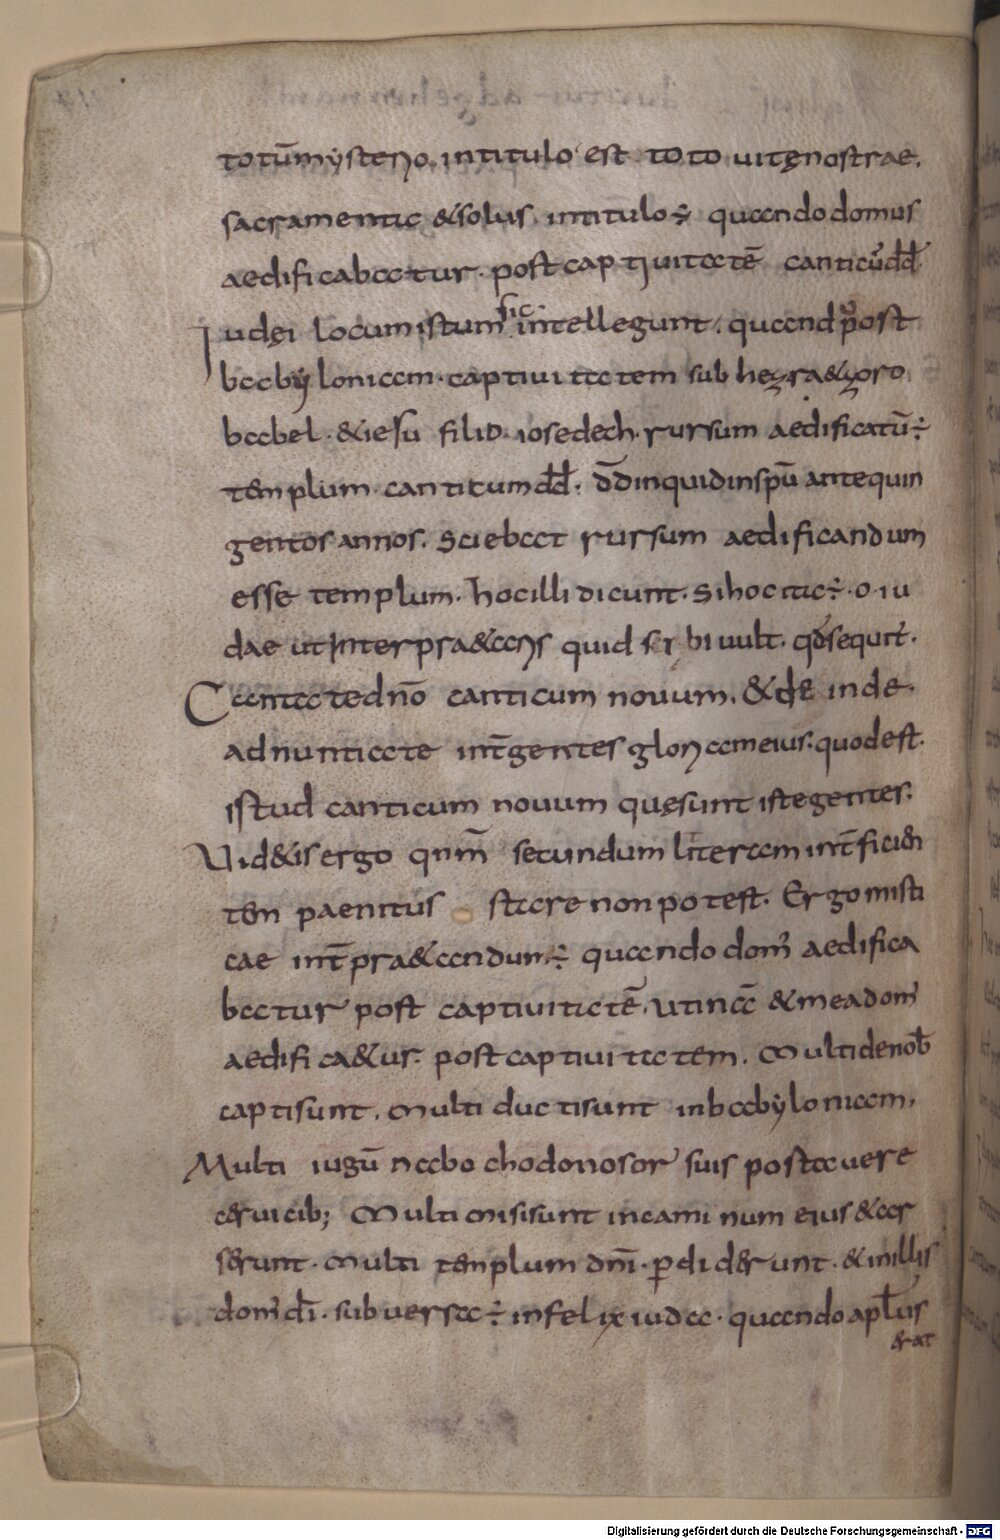 totū mysterio. in titulo est toto uitę nostrae.
sacramenta &solus. in titulo ÷ quando domus
aedificabatur. post captiuitatē canticū dd̄
Iudęi locum istum sic intellegunt. quando post
babyloniam. captiuitatem sub hezra &zoro
babel. &iesu filio iosedech. rursum aedificatū ÷
templum. canticum dd̄. dd̄ inquid in spū ante quin
gentos annos. sciebat rursum aedificandum
esse templum. hoc illi dicunt. si hoc ita ÷. o iu
dae ut interpra&aris quid sibi uult. qd sequit̄.
Cantate dno̅ canticum nouum. &de inde.
adnuntiate int̄ gentes gloriam eius. quod est.
istud canticum nouum quę sunt iste gentes.
Uid&is ergo qnm̅ secundum literam int̄ficien
tem paenitus stare non potest. Ergo misti
cae int̄pra&andum ÷ quando dom' aedifica
batur post captiuitatē. Utinā &mea dom'
aedifica&ur. post captiuitatem. Multi de nob̄
capti sunt. Multi ducti sunt in babyloniam.
Multi iugū nabochodonosor suis postauere
ceruicib; Multi misi sunt in caminum eius &ar
serunt. Multi templum dnī. perdiderunt. &in illis
dom' dī. subuersa ÷ infelix iuda. quando apl̄us
erat
Digitalisierung gefördert durch die Deutsche Forschungsgemeinschaft - DFG